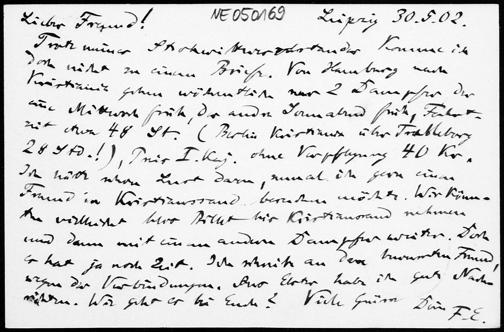 NE050169
Lieber Freund!
Leipzig 30.5.02.
Trotz meines Strohwitwerzustandes komme ich
doch nicht zu einem Briefe. Von Hamburg nach
Kristiania gehen wöchentlich nur 2 Dampfer der
eine Mittwoch früh, der andre Sonnabend früh, Fahrt-
zeit etwa 48 St. (Berlin Kristiania über Trälleborg
28 Std.!), Preis I. Kaj. ohne Verpflegung 40 Kr.
Ich hätte schon Lust dazu, zumal ich gern einen
Freund in Kristianssand besuchen möchte. Wir könn-
ten vielleicht blos Billet bis Kristianssand nehmen
und dann mit einem andern Dampfer weiter. Doch
es hat ja noch Zeit. Ich schreib an den Freund,
wegen der Verbindungen. Aus Elster habe ich gute Nach-
richten. Wie geht es bei Euch? Viele Grüsse Dein
F.E.